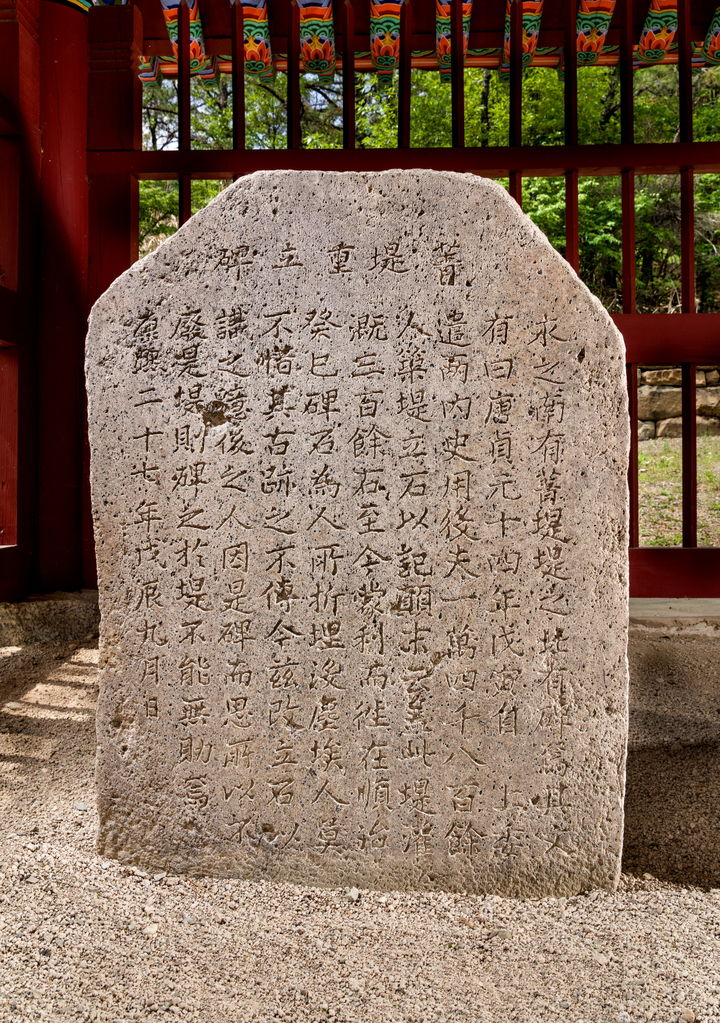 菁堤重立碑
永之南有菁堤堤之北有碑焉其文
有曰唐貞元十四年戊寅自 上委
遣兩內史用役夫一萬四千八百餘
人築堤立石以記顚末盖此堤灌
漑三百餘石至今蒙利而徃在順治
癸巳碑石為人所折埋沒塵埃人莫
不惜其古跡之不傳今玆改立石以
識之噫後之人因是碑而思所以不
廢是堤則碑之於堤不能無助焉
康熙二十七年戊辰九月日